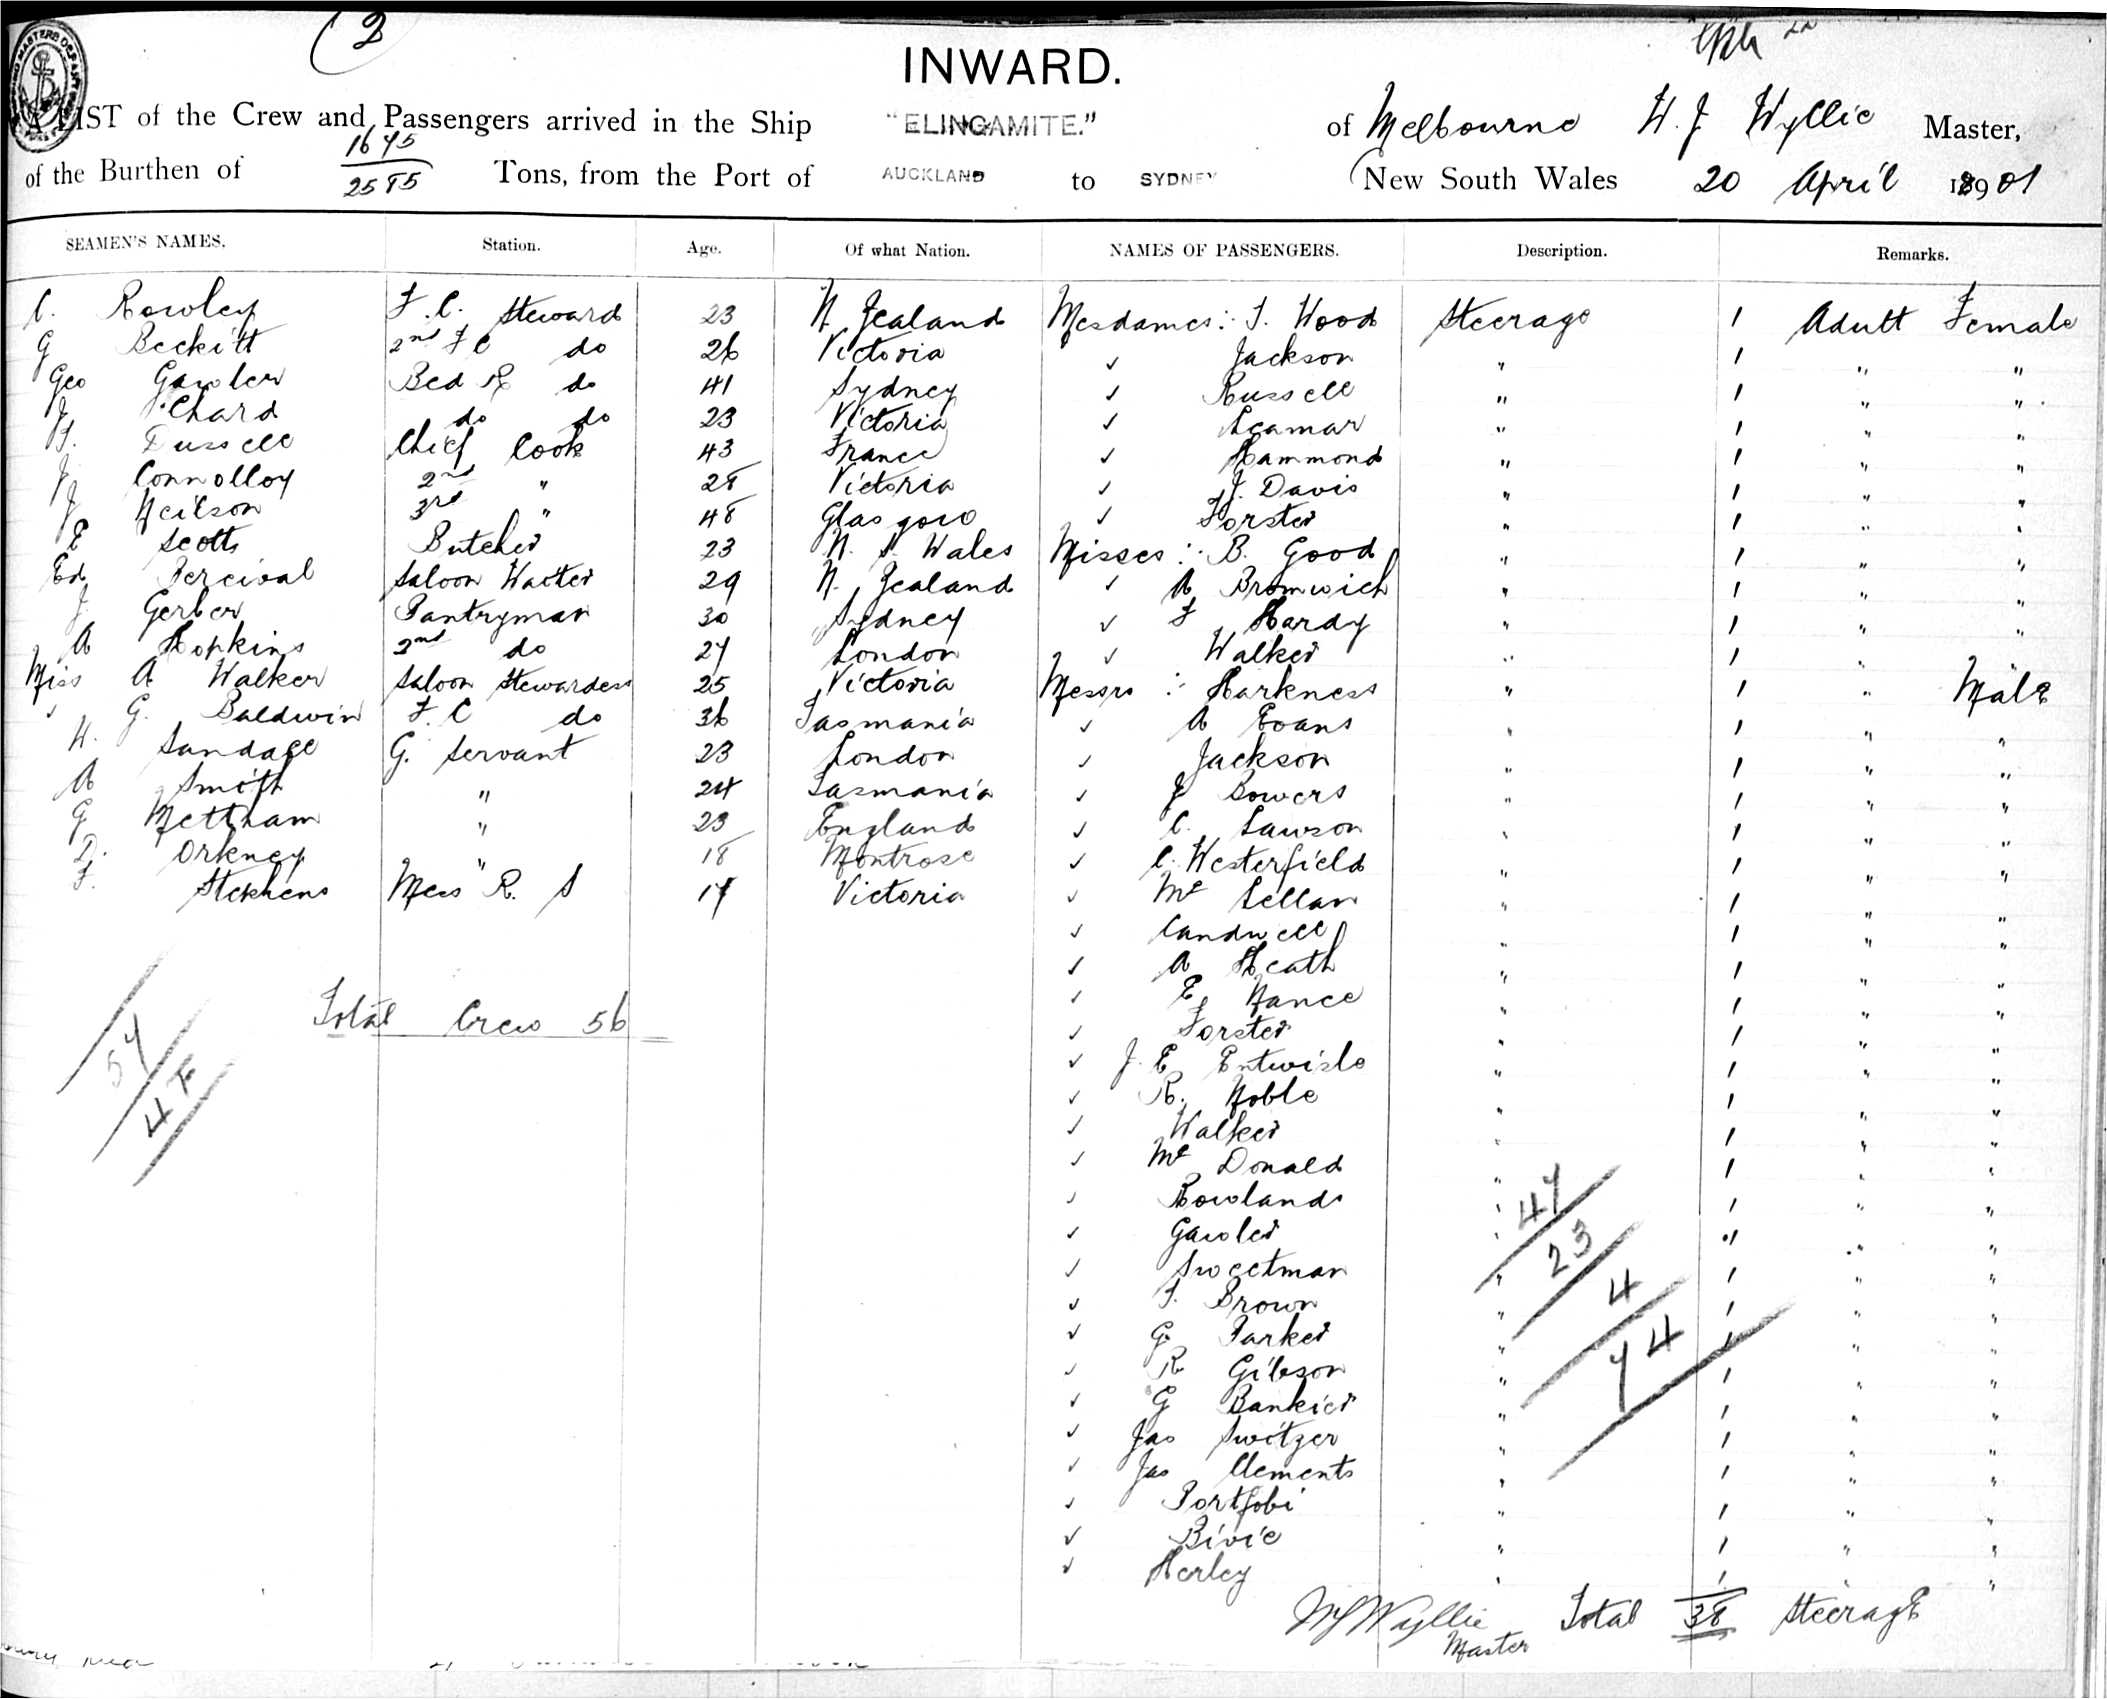 (2
INWARD.
A LIST of the Crew and Passengers arrived in the Ship "ELINGAMITE." of Melbourne W. J Wyllie Master,
of the Burthen of 1675/2585 Tons, from the Port of AUCKLAND to SYDNEY (New South Wales 20 April 1901
SEAMEN'S NAMES. Station. Age. Of what Nation. NAMES OF PASSENGERS. Description. Remarks.
C. Rowley F.C. Steward 23 N Zealand Mesdames :- T. Wood Steerage 1 Adult Female
G Beckitt 2nd F C do 26 Victoria ✓ Jackson " 1 " "
Geo Gawler Bed R do 41 Sydney ✓ Russell " 1 " "
J Chard do do 23 Victoria ✓ Leamar " 1 " "
T. Dussell Chief Cook 43 France ✓ Hammond " 1 " "
J Connolloy 2nd " 28 Victoria ✓ J. Davis " 1 " "
J Neilson 3rd " 48 Glasgow ✓ Forster " 1 " "
E Scotts Butcher 23 N. S. Wales Misses :- B. Good " 1 " "
Ed Percival Saloon Waiter 29 N. Zealand ✓ A Bromwich " 1 " "
J Gerber Pantryman 30 Sydney ✓ F Hardy " 1 " "
A Hopkins 2nd do 27 London ✓ Walker " 1 "
Miss A Walker Saloon Stewardess 25 Victoria Messrs :- Harkness " 1 " Male
✓ G. Baldwin F. C do 36 Tasmania ✓ A Evans " 1 " "
H. Sandall G. Servant 23 London ✓ Jackson " 1 " "
A Smith " 24 Tasmania ✓ J Bowers " 1 " "
G Mettham " 23 England ✓ C. Lawson " 1 " "
D. Orkney " 18 Montrose ✓ C. Westerfield " 1 " "
F. Stephens Mess R. S 17 Victoria ✓ Mc Lellan " 1 " "
✓ Candwell " 1 " "
✓ A Heath " 1 " "
✓ E Nance " 1 " "
Total Crew 56
✓ Forster " 1 " "
✓ J. E Entwisle " 1 " "
57
4 F
✓ R. Noble " 1 " "
✓ Walker " 1 " "
✓ Mc Donald " 1 " "
✓ Rowlands " 1 " "
✓ Gawler " 1 " "
✓ Sweetman " 1 " "
✓ T. Brown " 1 " "
✓ G. Parker " 1 " "
✓ R Gibson " 1 " "
✓ G Bankier " 1 " "
✓ Jas Switzer " 1 " "
✓ Jas Clements " 1 " "
✓ " 1 " "
✓ Bivie " 1 " "
✓ Herley " 1 " "
47
23
4
74
WJ Wyllie Total 38 Steerage
Master